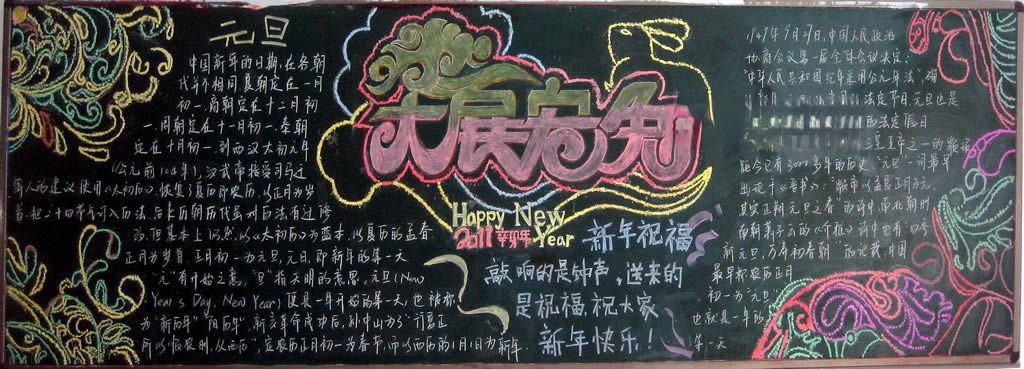 元旦
中国新年的日期,在各朝
代并不相同夏朝定在一月
初一,商朝定在十二月初
一,周朝定在十一月初一,秦朝
定在十月初一,到西汉太初元年
(公元前104年),汉武帝接受司马迁
等人的建议使用《太初历》,恢复了夏历即农历,以正月为岁
首,把二十四节气订入历法,后长历朝历代虽对历法有过修
改,但基本上仍然以《太初历》为蓝本,以夏历的孟春
正月为岁首,正月初一为元旦,元日,即新年的第一天
"元"有开始之意,"旦"指天明的意思,元旦(New
Year's Day, New Year)便是一年开始的第一天也被称
为"新历年""阳历年",辛亥革命成功后,孙中山为了"行夏正
所以顺农时,从西历",定农历正月初一为春节,而以西历的1月1日为新年.
大展宏兔
Happy New
2011 辛卯年 Year
新年祝福
敲响的是钟声,送来的
是祝福,祝大家
新年快乐!
1949年9月27日,中国人民政治
协商会议第一届全体会议决定:
"中华人民共和国纪年采用公元年法",确
法定节日元旦也是
的法定假日
三皇五帝之一的
距今已有3000多年的历史"元旦"一词最早
出现于《晋书》:"颛帝以孟夏正月为元,
其实正朔元旦之春"的诗中.南北朝时
南朝萧子云的《介雅》诗中也有"四季
新元旦,万寿初春朝"的记载.中国
最早称农历正月
初一为"元旦"
也就是一年的
第一天